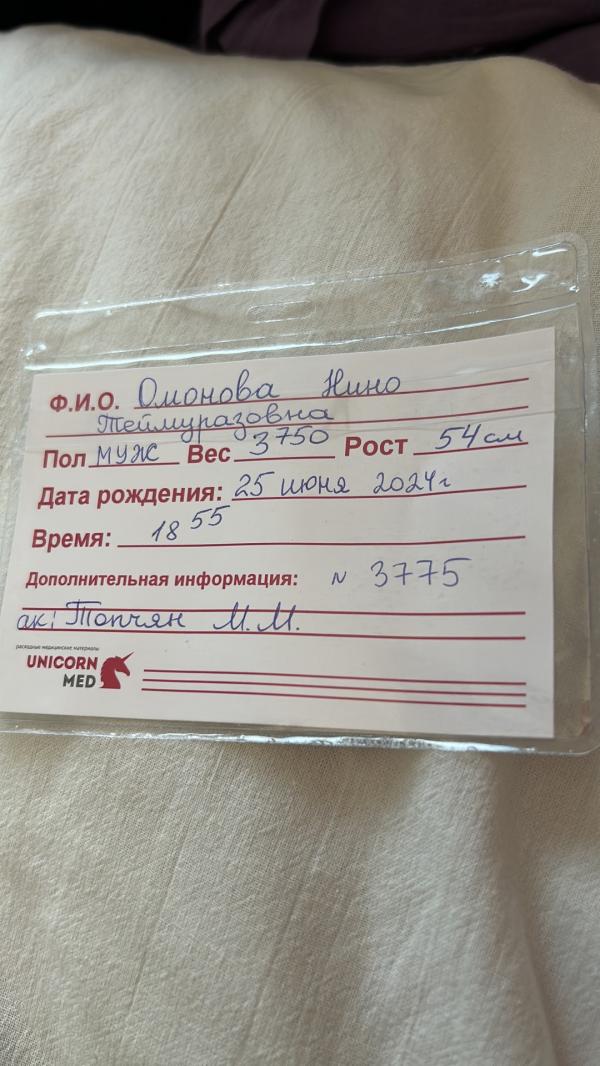 Ф.И.О. Омонова Нино
Теймуразовна
Пол муж Вес 3750 Рост 54 см
Дата рождения: 25 июня 2024 г
Время: 18 55
Дополнительная информация: N 3775
ак: Топчян М.М.
расходные медицинские материалы
UNICORN
MED